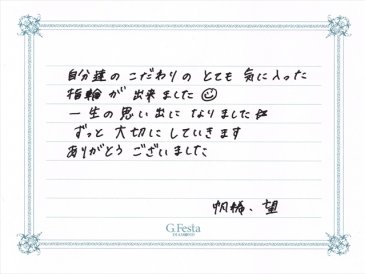 自分達の こだわりの とても 気に入った
指輪が 出来ました☺
一生の思い出に なりました
ずっと 大切に していきます
ありがとう ございました
帆楠、望
G.Festa